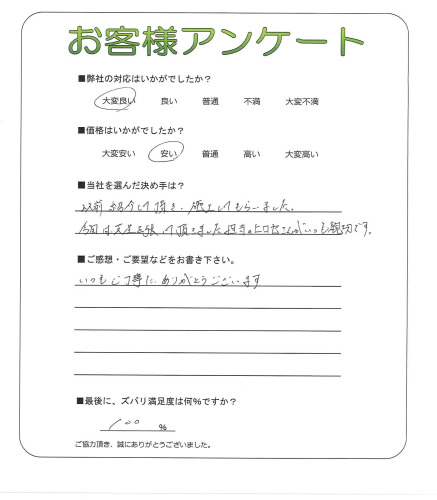 お客様アンケート
■弊社の対応はいかがでしたか？
大変良い 良い 普通 不満 大変不満
■価格はいかがでしたか？
大変安い 安い 普通 高い 大変高い
■当社を選んだ決め手は？
以前紹介して頂き、施工してもらいました。
今回は天井を張って頂きました 担当のヒロセさんがいつも親切です。
■ご感想・ご要望などをお書き下さい。
いつもご丁寧に、ありがとうございます
■最後に、ズバリ満足度は何%ですか？
100 %
ご協力頂き、誠にありがとうございました。